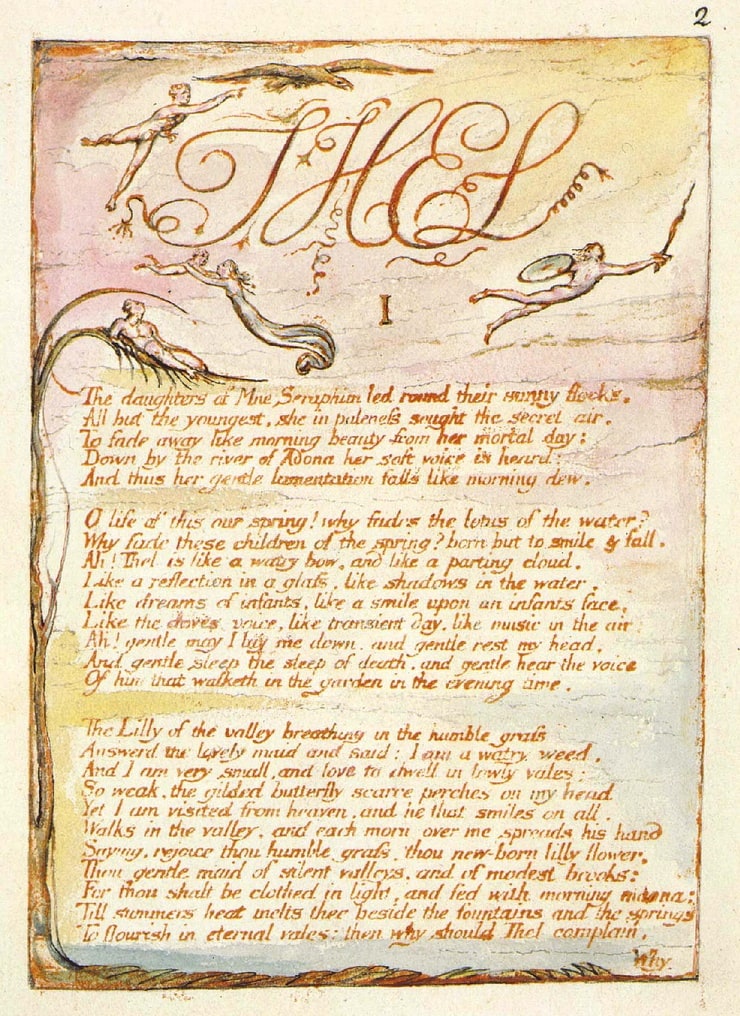 2
THEL
I
The daughters of Mne Seraphim led round their sunny flocks.
All but the youngest, she in paleness sought the secret air.
To fade away like morning beauty from her mortal day:
Down by the river of Adona her soft voice is heard:
And thus her gentle lamentation falls like morning dew.
O life of this our spring! why fades the lotus of the water?
Why fade these children of the spring? born but to smile & fall.
Ah! Thel is like a watry bow, and like a parting cloud.
Like a reflection in a glass, like shadows in the water.
Like dreams of infants, like a smile upon an infants face,
Like the doves voice, like transient day, like music in the air:
Ah! gentle may I lay me down, and gentle rest my head.
And gentle sleep the sleep of death, and gentle hear the voice
Of him that walketh in the garden in the evening time.
The Lilly of the valley breathing in the humble grass
Answerd the lovely maid and said: I am a watry weed,
And I am very small, and love to dwell in lowly vales:
So weak, the gilded butterfly scarce perches on my head
Yet I am visited from heaven, and he that smiles on all.
Walks in the valley, and each morn over me spreads his hand
Saying, rejoice thou humble grass, thou new-born lilly flower,
Thou gentle maid of silent valleys, and of modest brooks:
For thou shalt be clothed in light, and fed with morning manna:
Till summers heat melts thee beside the fountains and the springs
To flourish in eternal vales: then why should Thel complain.
Why